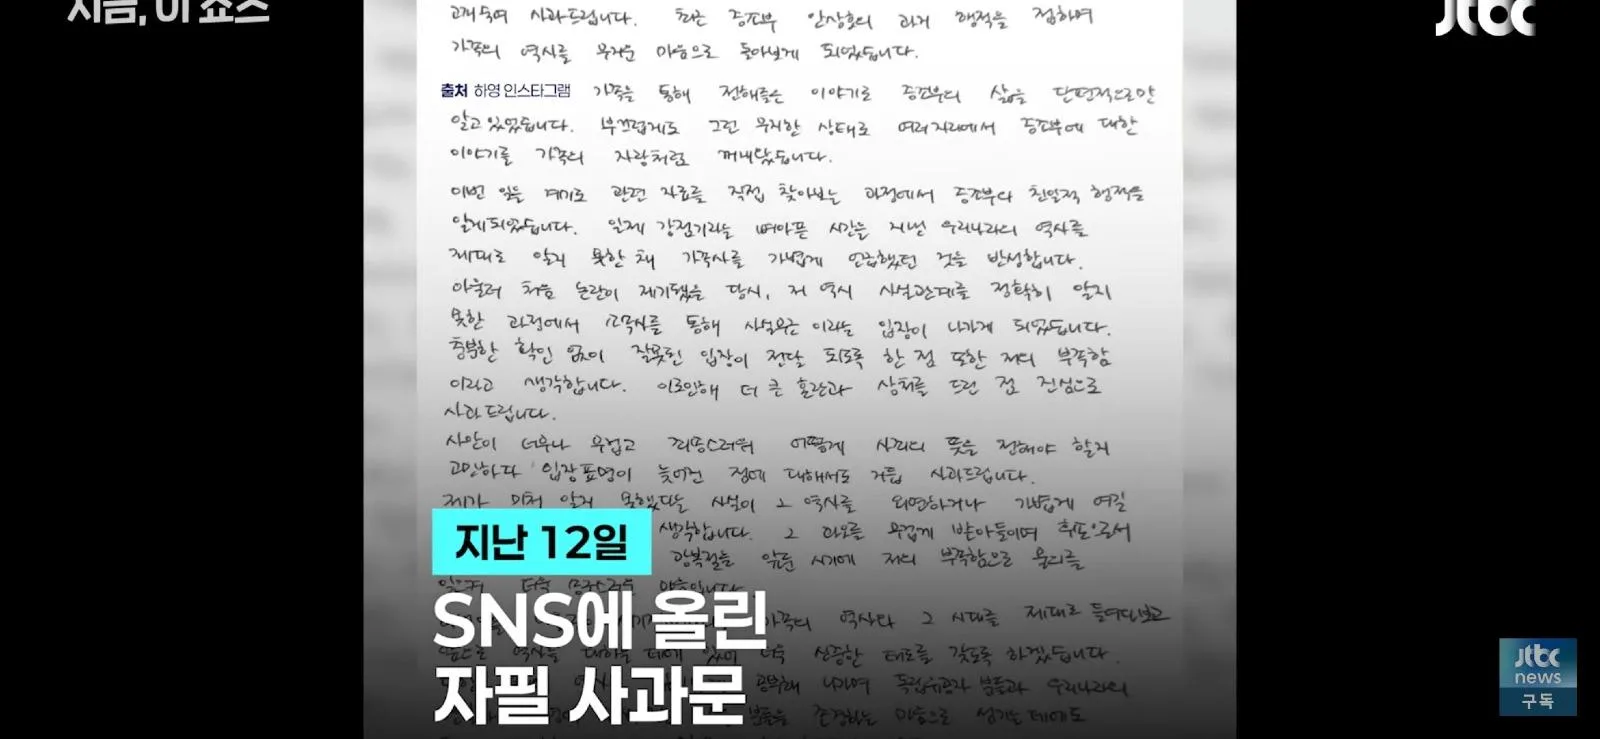 지금, 이 쇼츠
jtbc
고개숙여 사과드립니다. 최근 증조부 안상호의 과거 행적을 접하며
가족의 역사를 무거운 마음으로 돌아보게 되었습니다.
출처 하영 인스타그램
가족을 통해 전해들은 이야기로 증조부의 삶을 단편적으로만
알고 있었습니다. 부끄럽게도 그런 무지한 상태로 여러 자리에서 증조부에 대한
이야기를 가족의 자랑처럼 꺼내왔습니다.
이번 일을 계기로 관련 자료를 직접 찾아보는 과정에서 증조부의 친일적 행적을
알게되었습니다. 일제 강점기라는 뼈아픈 시간을 지낸 우리나라의 역사를
제대로 알지 못한 채 가족사를 가볍게 언급했던 것을 반성합니다.
아울러 처음 논란이 제기됐을 당시, 저 역시 사실관계를 정확히 알지
못한 과정에서 소속사를 통해 사실무근 이라는 입장이 나가게 되었습니다.
충분한 확인 없이 잘못된 입장이 전달 되도록 한 점 또한 저의 부족함
이라고 생각합니다. 이로인해 더 큰 혼란과 상처를 드린 점 진심으로
사과드립니다.
사안이 너무나 무겁고 죄송스러워 어떻게 사죄의 뜻을 전해야 할지
고민하다 입장표명이 늦어진 점에 대해서도 거듭 사과드립니다.
제가 미처 알지 못했다는 사실이 그 역사를 외면하거나 가볍게 여길
생각합니다. 그 과오를 무겁게 받아들이며 후손으로서
광복절을 앞둔 시기에 저의 부족함으로 물의를
가족의 역사와 그 시대를 제대로 들여다보고
있어 더욱 신중한 태도를 갖도록 하겠습니다.
공부해 나가며 독립유공자 분들과 우리나라의
분들을 존경하는 마음으로 섬기는 데에도
지난 12일
SNS에 올린
자필 사과문
jtbc
news
구독